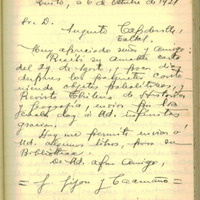 Quito, a 6 de Octubre de 1921
Sr. D.
Augusto Capdeville,
Taltal.
Muy apreciado señor y amigo:
Recibí su amable carta
del 29 de Agosto, y pocos días
después los paquetes conte
niendo objetos paleolíticos, y
Revista Chilena de Historia
y Geografía, envíos por los
cuales doy a Ud. infinitas
gracias.
Hoy me permito enviar a
Ud. algunos libros, para su
Biblioteca.
de Ud. afmo. amigo,
J. Jijón y Caamaño